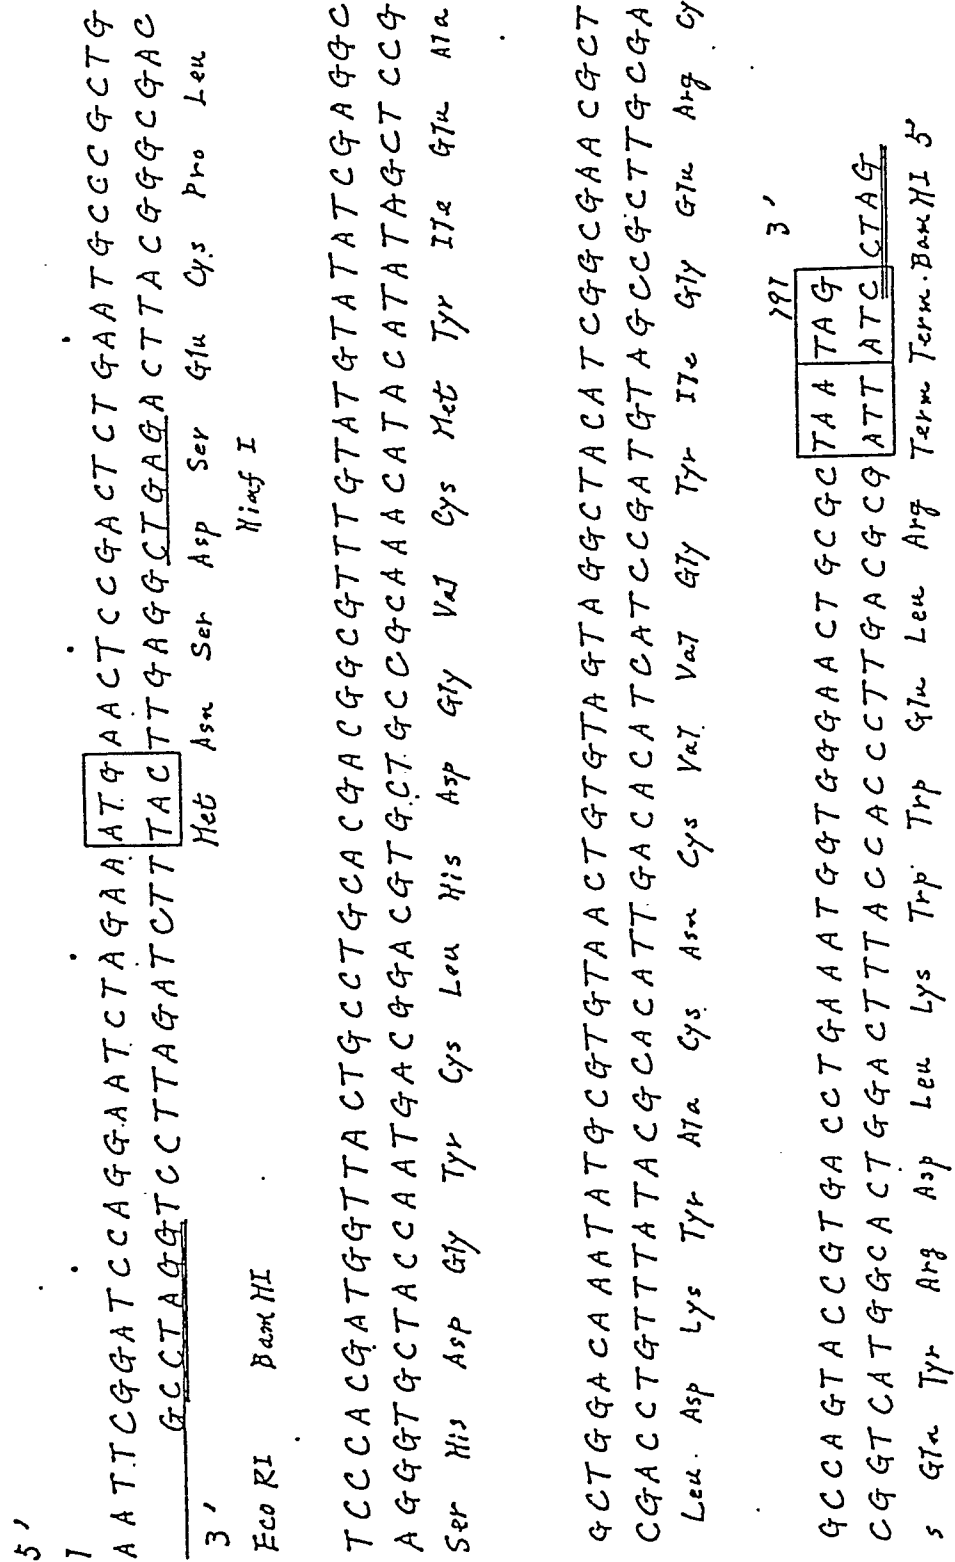 5'
1
AATTCGGATCCAGGAATCTAGAA ATG AACTCCGACTCTGAATGCCCGCTG
GCCTAGGTCCTTAGATCTT TAC TTGAGGCTGAGACTTACGGGCGAC
3' Met Asn Ser Asp Ser Glu Cys Pro Leu
EcoRI BamHI Hinf I
TCCCACGATGGTTACTGCCTGCACGACGGCGTTTGTATGTATATCGAGGC
AGGGTGCTACCAATGACGGACGTGCTGCCGCAAACATACATATAGCTCCG
Ser His Asp Gly Tyr Cys Leu His Asp Gly Val Cys Met Tyr Ile Glu Ala
GCTGGACAAATATGCGTGTAACTGTGTAGTAGGCTACATCGGCGAACGCT
CGACCTGTTTATACGCACATTGACACATCATCCGATGTAGCCGCTTGCGA
Leu Asp Lys Tyr Ala Cys Asn Cys Val Val Gly Tyr Ile Gly Glu Arg Cy
197 3'
GCCAGTACCGTGACCTGAAATGGTGGGAACTGCGC TAA TAG
CGGTCATGGCACTGGACTTTACCACCCTTGACGCG ATT ATC CTAG
s Gln Tyr Arg Asp Leu Lys Trp Trp Glu Leu Arg Term Term. BamHI 5'